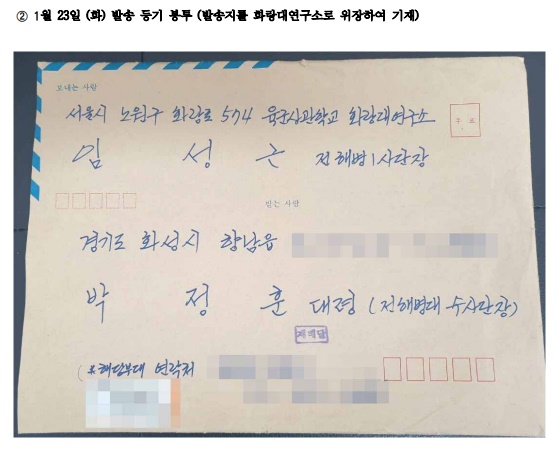 ② 1월 23일 (화) 발송 등기 봉투 (발송지를 화랑대연구소로 위장하여 기재)
보내는 사람
서울시 노원구 화랑로 574 육군사관학교 화랑대연구소
우 표
임 성 근 전해병1사단장
받는 사람
경기도 화성시 향남읍
박 정 훈 대령 (전해병대 수사단장)
(※해당부대 연락처